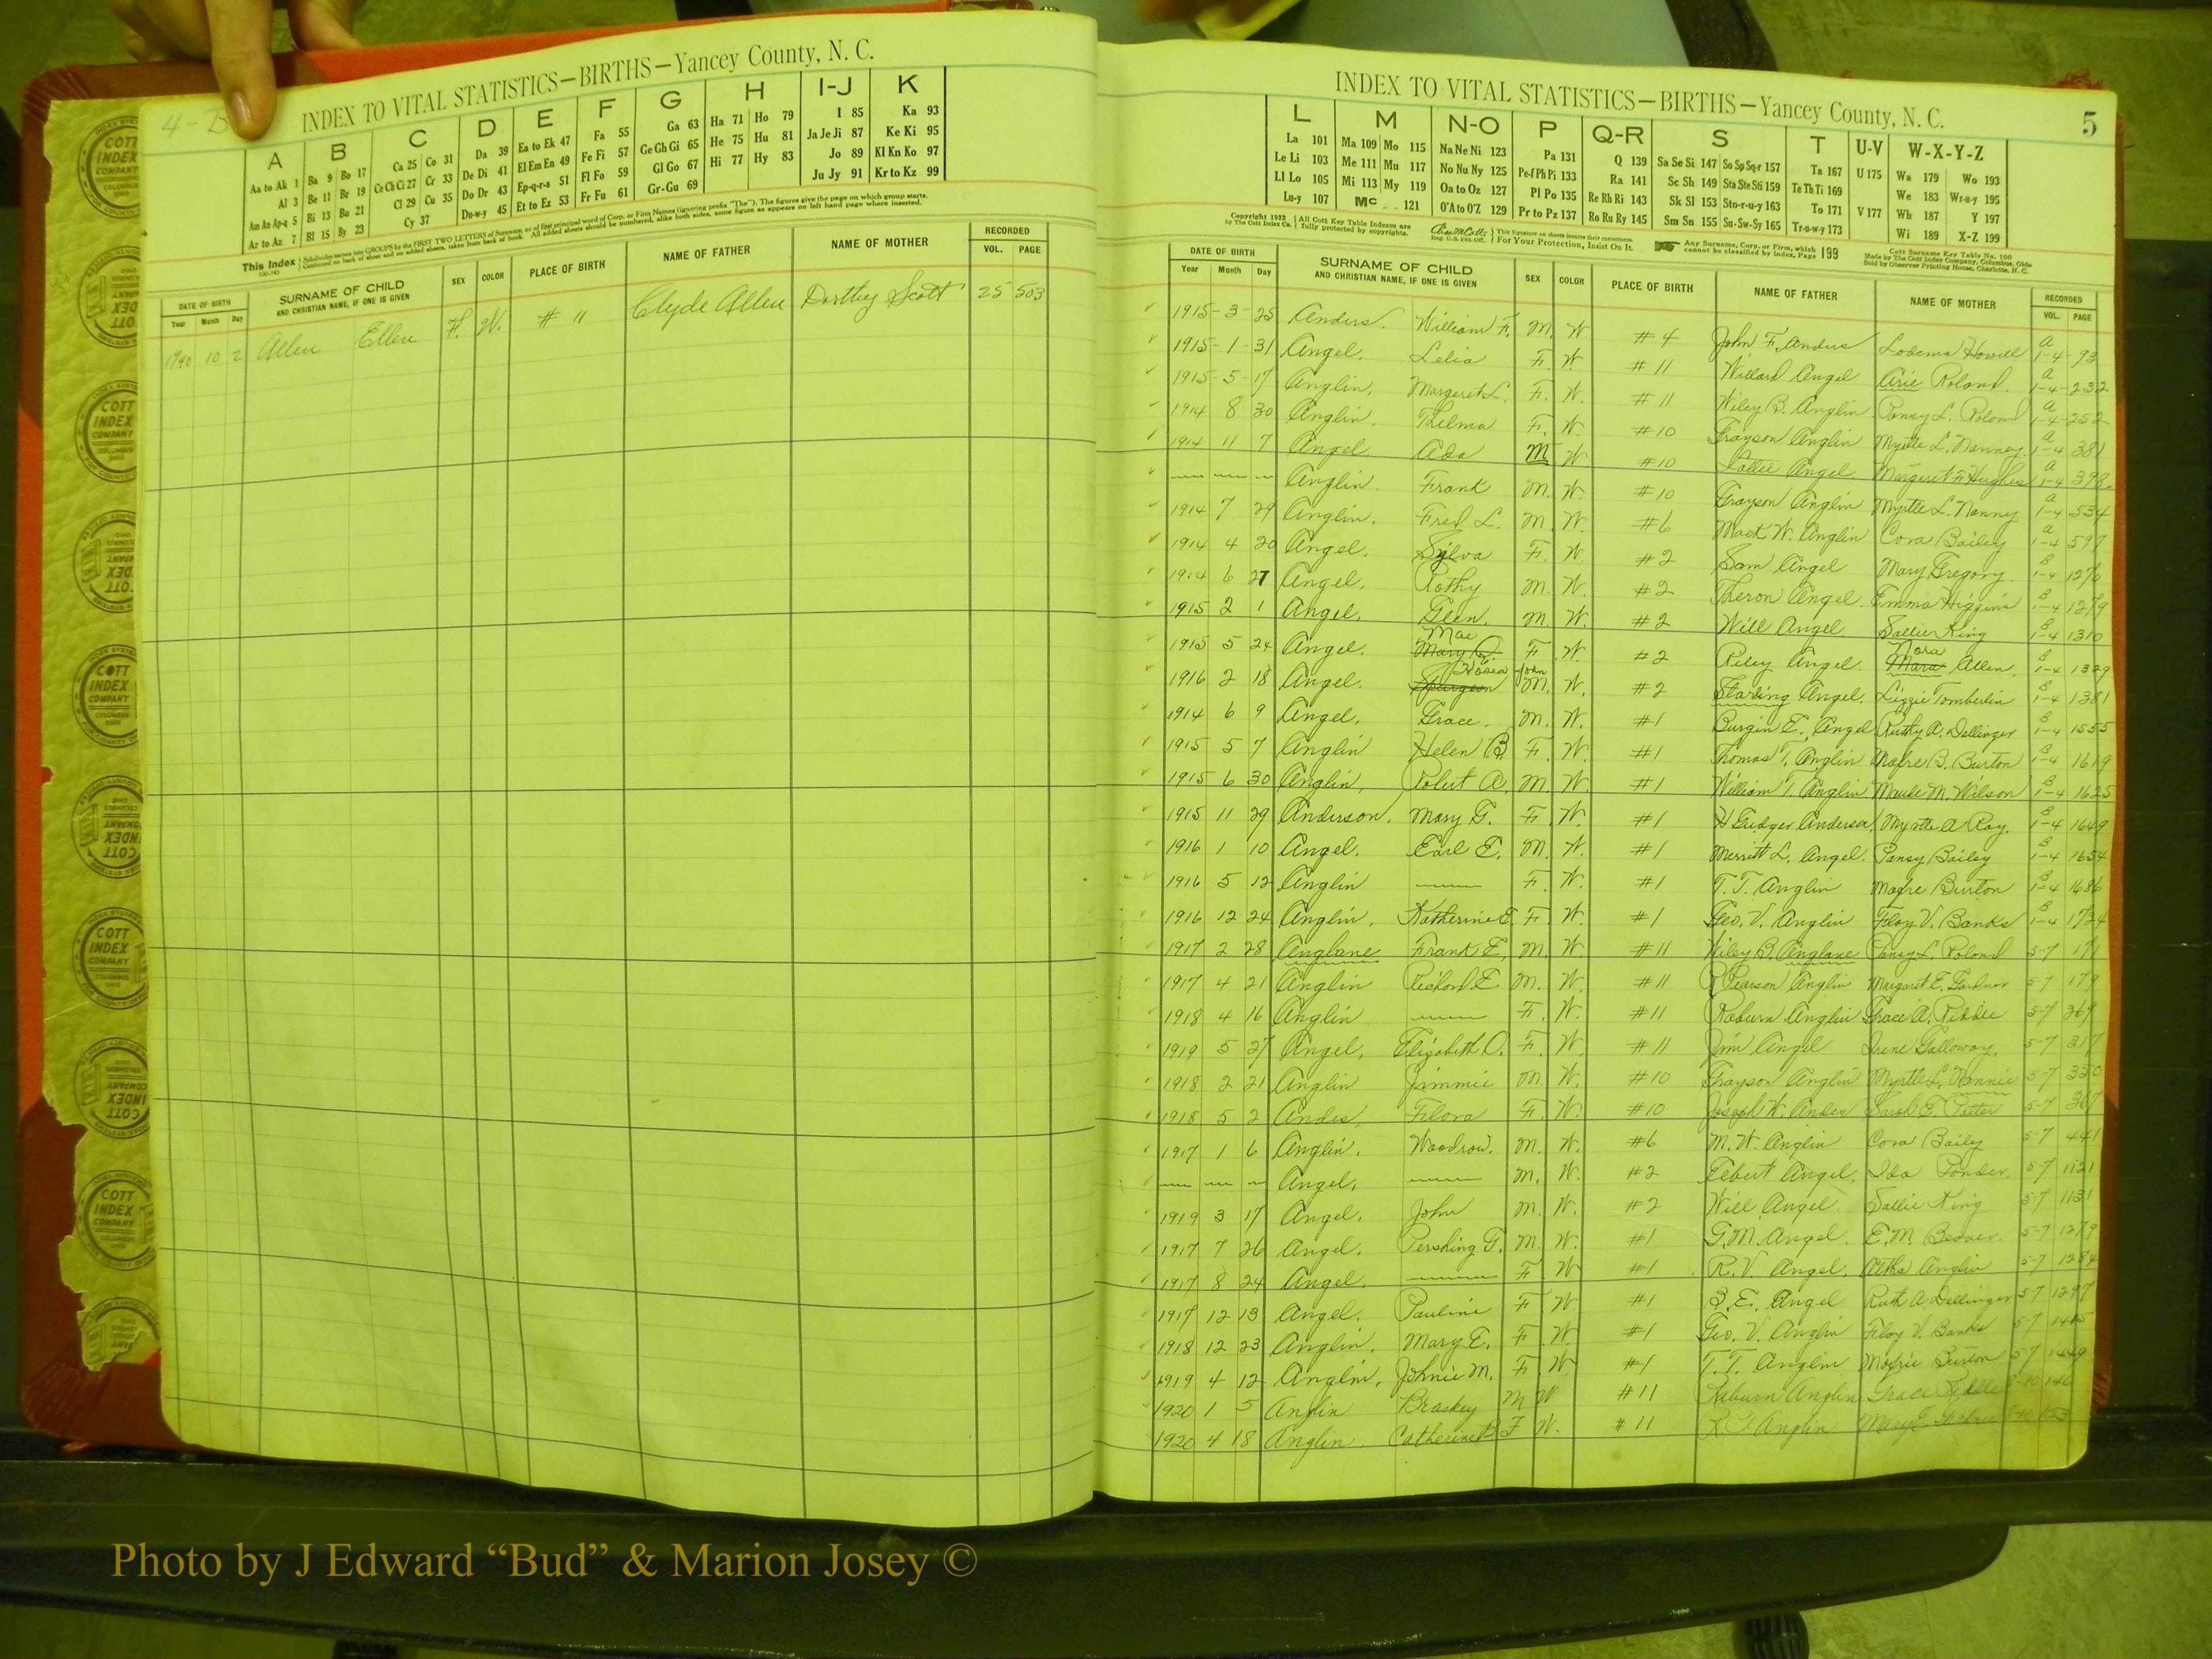 4-B
INDEX TO VITAL STATISTICS—BIRTHS—Yancey County, N. C.
A B C D E F G H I-J K
Aa to Ak 1 Ba 9 Bo 17 Ca 25 Co 31 Da 39 Ea to Ek 47 Fa 55 Ga 63 Ha 71 Ho 79 I 85 Ka 93
Al 3 Be 11 Br 19 Ce Ch Ci 27 Cr 33 De Di 41 El Em En 49 Fe Fi 57 Ge Gh Gi 65 He 75 Hu 81 Ja Je Ji 87 Ke Ki 95
Am An Ap-q 5 Bi 13 Bu 21 Cl 29 Cu 35 Do Dr 43 Ep-q-r-s 51 Fl Fo 59 Gl Go 67 Hi 77 Hy 83 Jo 89 Kl Kn Ko 97
Ar to Az 7 Bl 15 By 23 Cy 37 Du-w-y 45 Et to Ez 53 Fr Fu 61 Gr-Gu 69 Ju Jy 91 Kr to Kz 99
This Index
DATE OF BIRTH SURNAME OF CHILD SEX COLOR PLACE OF BIRTH NAME OF FATHER NAME OF MOTHER RECORDED
Year Month Day AND CHRISTIAN NAME, IF ONE IS GIVEN VOL. PAGE
1940 10 2 Allen Ellen F. W. # 11 Clyde Allen Dorthy Scott 25 503
INDEX TO VITAL STATISTICS—BIRTHS—Yancey County, N. C. 5
L M N-O P Q-R S T U-V W-X-Y-Z
La 101 Ma 109 Mo 115 Na Ne Ni 123 Pa 131 Q 139 Sa Se Si 147 So Sp Sq-r 157 Ta 167 U 175 Wa 179 Wo 193
Le Li 103 Me 111 Mu 117 No Nu Ny 125 Pe-f Ph Pi 133 Ra 141 Sc Sh 149 Sta Ste Sti 159 Te Th Ti 169 We 183 Wr-u-y 195
Ll Lo 105 Mi 113 My 119 Oa to Oz 127 Pl Po 135 Re Rh Ri 143 Sk Sl 153 Sto-r-u-y 163 To 171 V 177 Wh 187 Y 197
Lu-y 107 Mc 121 O'A to O'Z 129 Pr to Pz 137 Ro Ru Ry 145 Sm Sn 155 Su-Sw-Sy 165 Tr-u-w-y 173 Wi 189 X-Z 199
Copyright 1932 All Cott Key Table Indexes are
by The Cott Index Co. fully protected by copyrights. For Your Protection, Insist On It. Any Surname, Corp. or Firm, which cannot be classified by Index, Page 199
Cott Surname Key Table No. 100
Made by The Cott Index Company, Columbus, Ohio
Sold by Observer Printing House, Charlotte, N. C.
DATE OF BIRTH SURNAME OF CHILD SEX COLOR PLACE OF BIRTH NAME OF FATHER NAME OF MOTHER RECORDED
Year Month Day AND CHRISTIAN NAME, IF ONE IS GIVEN VOL. PAGE
1915-3-25 Anders. William F. M. W. #4 John F. Anders Lodema Howell A 1-4-93
1915-1-31 Angel. Lelia F. W. #11 Willard Angel Arie Roland. A 1-4-232
1915-5-17 Anglin. Margeret L. F. W. #11 Wiley B. Anglin Pansy L. Roland A 1-4-252
1914 8 30 Anglin. Thelma F. W. #10 Grayson Anglin Myrtle L. Nanney. A 1-4 381
1914 11 7 Angel Ada M W. #10 Angel Margeret F. Hughes A 1-4 398.
Anglin. Frank M. W. #10 Grayson Anglin Myrtle L. Nanny A 1-4 534
1914 7 29 Anglin. Fred L. M. W. #6 Mack W. Anglin Cora Bailey A 1-4 597
1914 4 20 Angel. Sylva F. W. #2 Sam Angel Mary Gregory. B 1-4 1270
1914 6 27 Angel, Rothy M. W. #2 Theron Angel. Emma Higgins B 1-4 1279
1915 2 1 Angel, Glen. M. W. #2 Will Angel Sallie King B 1-4 1310
1915 5 24 Angel. Mary Mae F. W. #2 Riley Angel Mara Nora Allen. B 1-4 1329
1916 2 18 Angel. Spurgeon Hosea John M. W. #2 Starling Angel. Lizzie Tomberlin B 1-4 1381
1914 6 9 Angel. Grace. M. W. #1 Burgin E. Angel Ruthy A. Dellinger B 1-4 1555
1915 5 7 Anglin Helen B. F. W. #1 Thomas T. Anglin B. Burton B 1-4 1619
1915 6 30 Anglin, Robert A. M. W. #1 William T. Anglin Maude M. Wilson B 1-4 1625
1915 11 29 Anderson. Mary G. F. W. #1 H Gudger Anderson. Myrtle A Ray. B 1-4 1649
1916 1 10 Angel. Earl E. M. W. #1 Merritt L. Angel. Pansy Bailey B 1-4 1654
1916 5 12 Anglin F. W. #1 T. T. Anglin Burton B 1-4 1686
1916 12 24 Anglin. Katherine E. F. W. #1 Geo. V. Anglin Floy V. Banks B 1-4 1724
1917 2 28 Anglane Frank E. M. W. #11 Wiley B. Anglane Pansy L. Roland 5-7 171
1917 4 21 Anglin Richard E M. W. #11 R Pearson Anglin Margaret E. Gardner 5-7 179
1918 4 16 Anglin F. W. #11 Raburn Anglin Grace A. Riddle 5-7 269
1919 5 27 Angel, Elizabeth O. F. W. #11 Jim Angel Irene Galloway. 5-7 317
1918 2 21 Anglin Jimmie M. W. #10 Grayson Anglin Myrtle L. Nannie 5-7 350
1918 5 2 Andes, Flora F. W. #10 Joseph W. Andes Sarah E. 5-7 367
1917 1 6 Anglin. Woodrow. M. W. #6 M. W. Anglin Cora Baily 5-7 441
Angel. M. W. #2 Angel. Ida Ponder. 5-7 1121
1919 3 17 Angel. John M. W. #2 Will Angel Sallie King 5-7 1131
1917 7 26 Angel. Pershing G. M. W. #1 G. M. Angel. E. M. 5-7 1279
1917 8 24 Angel. F W #1 R. V. Angel. Anglin 5-7 1284
1917 12 13 Angel. Pauline F W #1 B. E. Angel Ruth A Dellinger 5-7 1297
1918 12 23 Anglin. Mary E. F W. #1 Geo. V. Anglin Floy V. Banks 5-7
1919 4 12 Anglin, Johnie M. F W. #1 T. T. Anglin Burton 5-7
1920 1 5 Anglin M W #11 Raburn Anglin Grace
1920 4 18 Anglin. Catherine B F W. #11 Anglin Mary E
Photo by J Edward “Bud” & Marion Josey ©